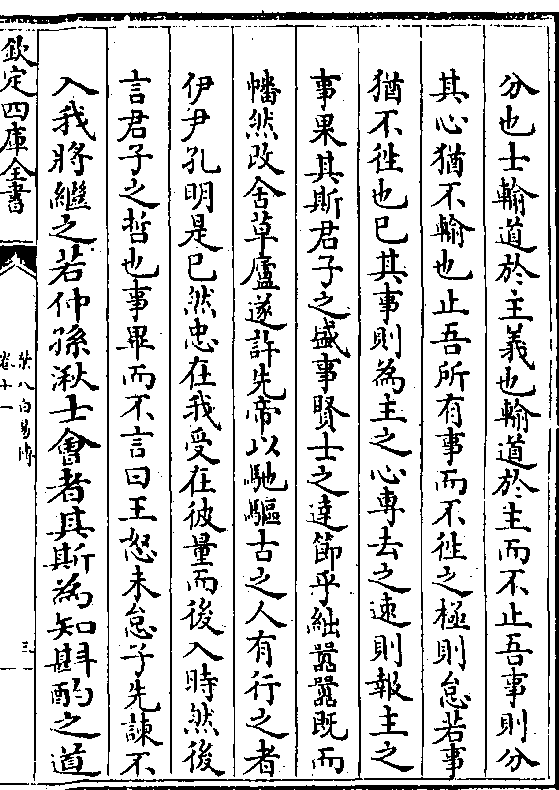 分也士輸道於主義也輸道於主而不止吾事則分
其心猶不輸也止吾所有事而不徃之極則怠若事
猶不徃也已其事則為主之心專去之速則報主之
事果其斯君子之盛事賢士之達節乎絀囂囂既而
幡然改舍草廬遂許先帝以馳驅古之人有行之者
伊尹孔明是已然忠在我受在彼量而後入時然後
言君子之哲也事畢而不言曰王怒未怠子先諫不
入我將繼之若仲孫湫士會者其斯為知斟酌之道
欽定四庫全書
卷十一
三